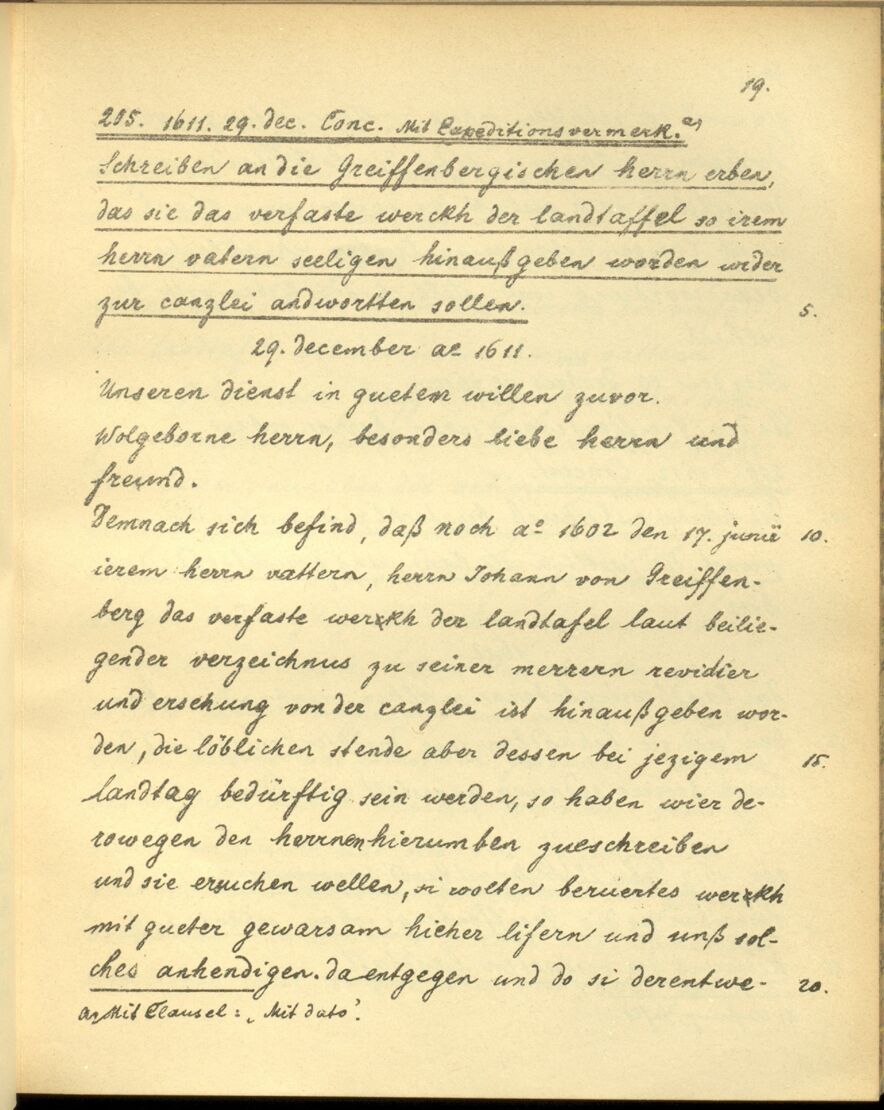 19.
205. 1611. 29. dec. Conc. Mit Expeditionsvermerk.a)
Schreiben an die Greiffenbergischen herrn erben,
das sie das verfaste werckh der landtaffel so irem
herrn vatern seeligen hinaußgeben worden wider
zur canzlei andwortten sollen. 5.
29. december ao 1611.
Unseren dienst in guetem willen zuvor.
Wolgeborne herrn, besonders liebe herrn und
freund.
Demnach sich befind, daß noch ao 1602 den 17. junii 10.
ierem herrn vattern, herrn Johann von Greiffen-
berg das verfaste werckh der landtafel laut beilie-
gender verzeichnus zu seiner merrern revidier
und ersehung von der canzlei ist hinaußgeben wor-
den, die löblichen stende aber dessen bei jezigem 15.
landtag bedürftig sein werden, so haben wier de-
rowegen den herrnen hierumben zueschreiben
und sie ersuchen wellen, si wolten beruertes werckh
mit gueter gewarsam hieher lifern und unß sol-
ches anhendigen. da entgegen und do si derentwe- 20.
a) Mit Clausel: „Mit dato".